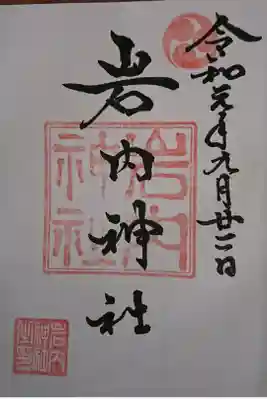 令和元年九月廿二日
岩内神社
岩内神社